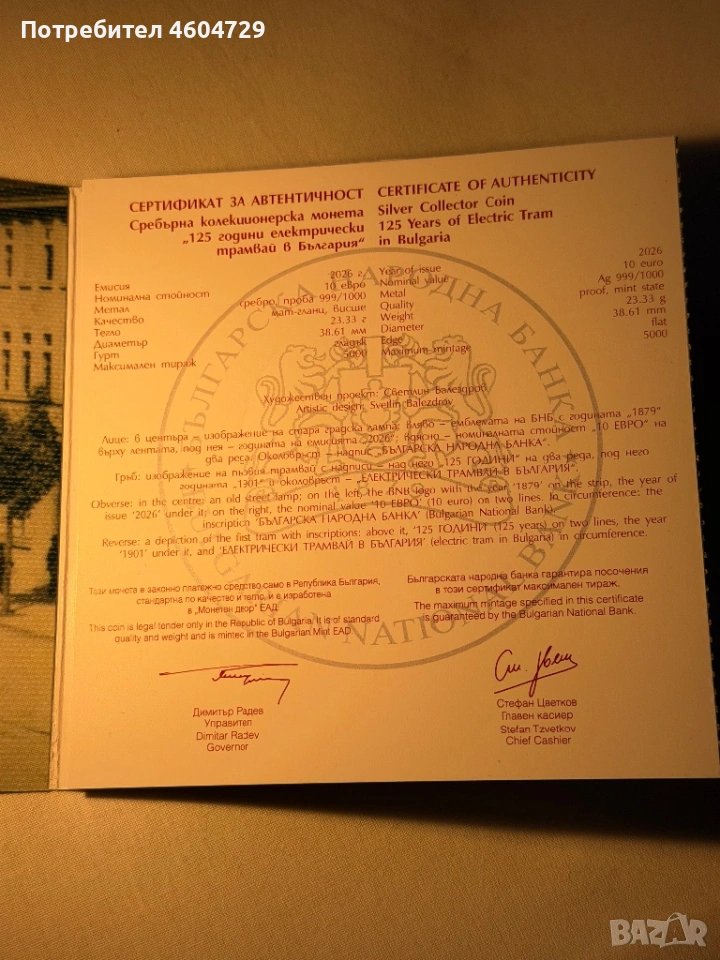 Потребител 4604729
СЕРТИФИКАТ ЗА АВТЕНТИЧНОСТ
Сребърна колекционерска монета
„125 години електрически
трамвай в България“
CERTIFICATE OF AUTHENTICITY
Silver Collector Coin
125 Years of Electric Tram
in Bulgaria
Емисия 2026 г.
Номинална стойност 10 евро
Метал сребро, проба 999/1000
Качество мат-гланц, висше
Тегло 23.33 г
Диаметър 38.61 мм
Гурт гладък
Максимален тираж 5000
Year of issue 2026
Nominal value 10 euro
Metal Ag 999/1000
Quality proof, mint state
Weight 23.33 g
Diameter 38.61 mm
Edge flat
Maximum mintage 5000
Художествен проект: Светлин Балездров
Artistic design: Svetlin Balezdrov
Лице: в центъра – изображение на стара градска лампа; вляво – емблемата на БНБ с годината „1879“
върху лентата, под нея – годината на емисията „2026“; вдясно – номиналната стойност „10 ЕВРО“ на
два реда. Околовръст – надпис „БЪЛГАРСКА НАРОДНА БАНКА“.
Гръб: изображение на първия трамвай с надписи – над него „125 ГОДИНИ“ на два реда, под него
годината „1901“ и околовръст – „ЕЛЕКТРИЧЕСКИ ТРАМВАЙ В БЪЛГАРИЯ“.
Obverse: in the centre, an old street lamp; on the left, the BNB logo with the year '1879' on the strip, the year of
issue '2026' under it; on the right, the nominal value '10 ЕВРО' (10 euro) on two lines. In circumference: the
inscription 'БЪЛГАРСКА НАРОДНА БАНКА' (Bulgarian National Bank).
Reverse: a depiction of the first tram with inscriptions: above it, '125 ГОДИНИ (125 years) on two lines, the year
'1901' under it, and 'ЕЛЕКТРИЧЕСКИ ТРАМВАЙ В БЪЛГАРИЯ' (electric tram in Bulgaria) in circumference.
Тази монета е законно платежно средство само в Република България,
стандартна по качество и тегло, и е изработена
в „Монетен двор“ ЕАД.
This coin is legal tender only in the Republic of Bulgaria. It is of standard
quality and weight and is minted in the Bulgarian Mint EAD.
Българската народна банка гарантира посочения
в този сертификат максимален тираж.
The maximum mintage specified in this certificate
is guaranteed by the Bulgarian National Bank.
Димитър Радев
Управител
Dimitar Radev
Governor
Стефан Цветков
Главен касиер
Stefan Tzvetkov
Chief Cashier
БЪЛГАРСКА НАРОДНА БАНКА
BULGARIAN NATIONAL BANK
BAZAR